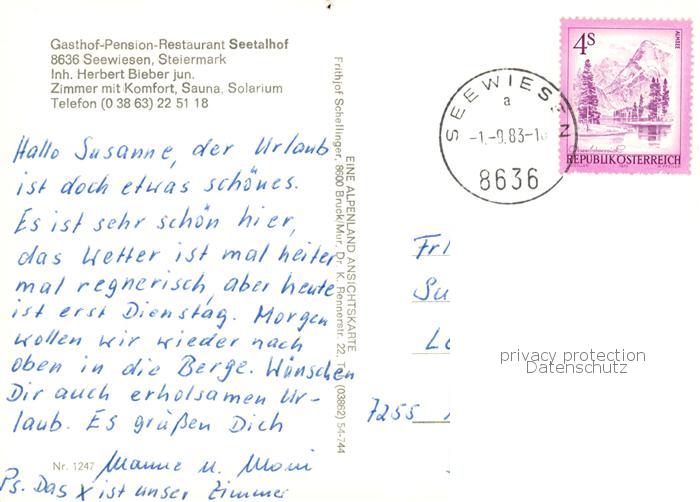 Gasthof-Pension-Restaurant Seetalhof
8636 Seewiesen, Steiermark
Inh. Herbert Bieber jun.
Zimmer mit Komfort, Sauna, Solarium
Telefon (0 38 63) 22 51 18
Hallo Susanne, der Urlaub
ist doch etwas schönes.
Es ist sehr schön hier,
das Wetter ist mal heiter
mal regnerisch, aber heute
ist erst Dienstag. Morgen
wollen wir wieder nach
oben in die Berge. Wünschen
Dir auch erholsamen Ur-
laub. Es grüßen Dich
Manne u. Moni
Nr. 1247
Ps. Das X ist unser Zimmer
EINE ALPENLAND ANSICHTSKARTE
Frithjof Schellinger, 8600 Bruck/Mur, Dr. K. Rennerstr. 22, (03862) 54-744
SEEWIESEN
a
-1.-9.83-1
8636
4S
ALMSEE
REPUBLIK ÖSTERREICH
Frl
Su
7255
privacy protection
Datenschutz